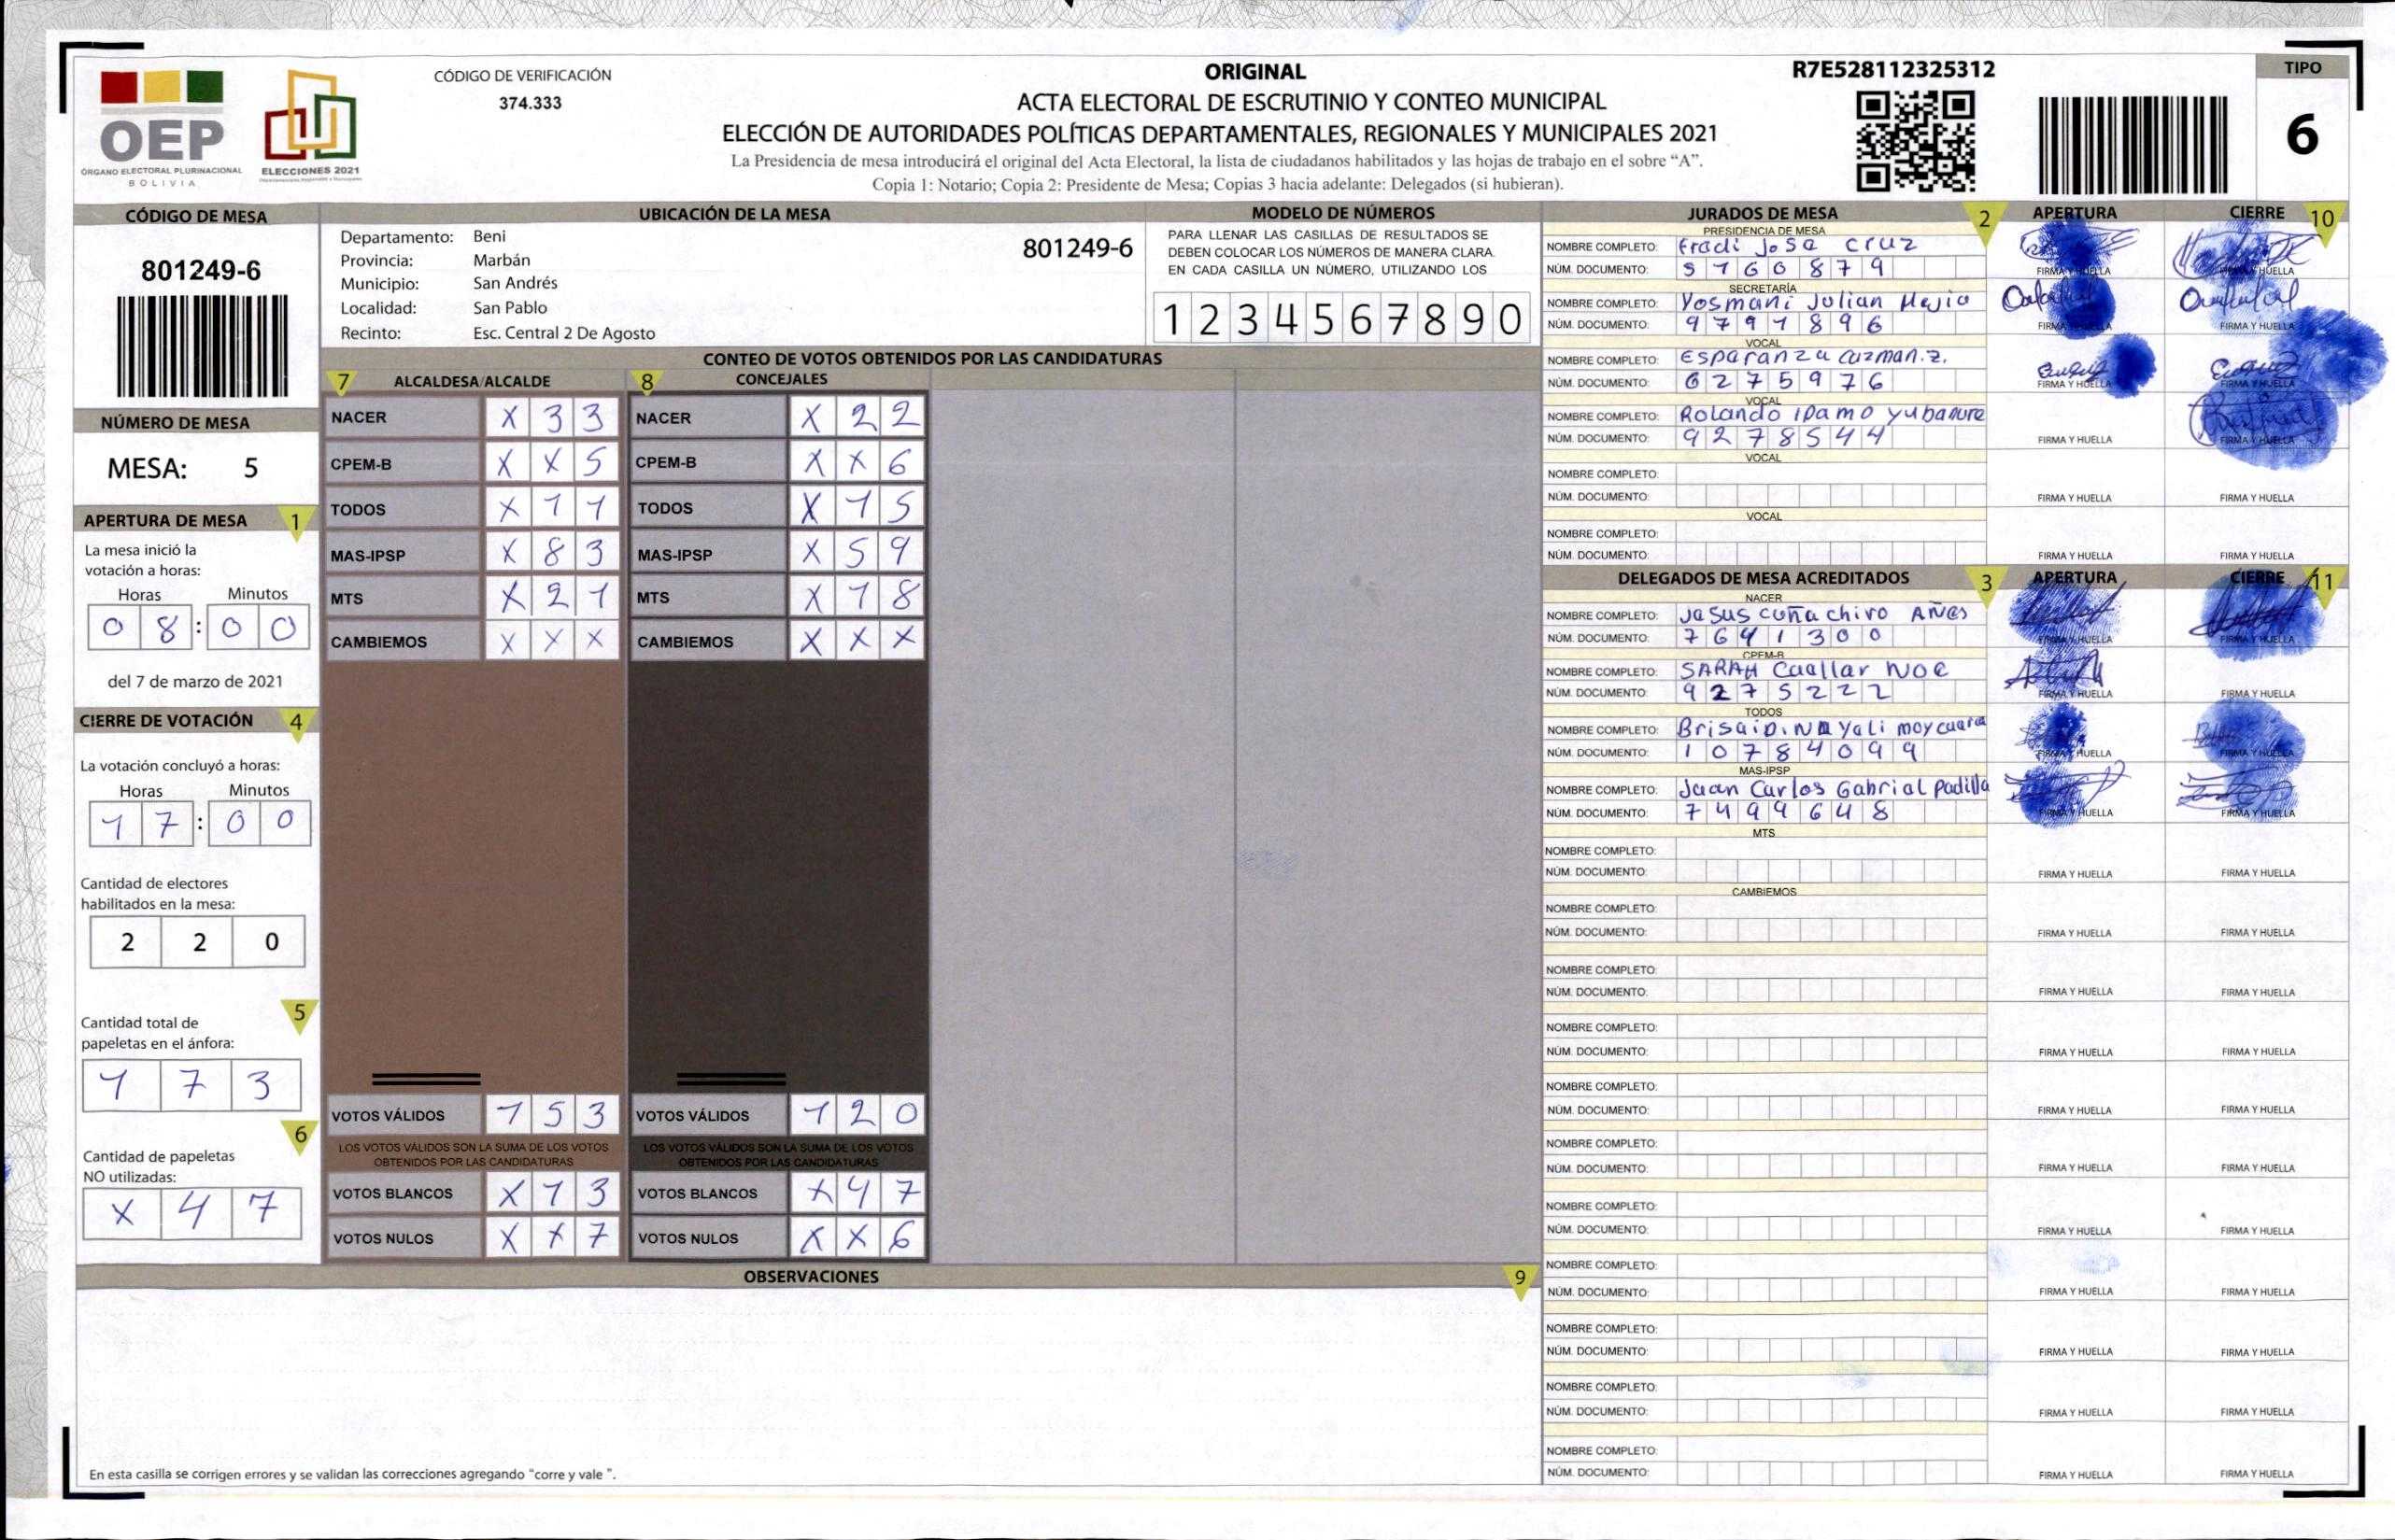 OEP
ÓRGANO ELECTORAL PLURINACIONAL
BOLIVIA
ELECCIONES 2021
CÓDIGO DE VERIFICACIÓN
374.333
ORIGINAL
ACTA ELECTORAL DE ESCRUTINIO Y CONTEO MUNICIPAL
ELECCIÓN DE AUTORIDADES POLÍTICAS DEPARTAMENTALES, REGIONALES Y MUNICIPALES 2021
La Presidencia de mesa introducirá el original del Acta Electoral, la lista de ciudadanos habilitados y las hojas de trabajo en el sobre “A”.
Copia 1: Notario; Copia 2: Presidente de Mesa; Copias 3 hacia adelante: Delegados (si hubieran).
R7E528112325312
TIPO
6
CÓDIGO DE MESA
801249-6
NÚMERO DE MESA
MESA: 5
APERTURA DE MESA 1
La mesa inició la
votación a horas:
Horas Minutos
0 8 : 0 0
del 7 de marzo de 2021
CIERRE DE VOTACIÓN 4
La votación concluyó a horas:
Horas Minutos
1 7 : 0 0
Cantidad de electores
habilitados en la mesa:
2 2 0
5
Cantidad total de
papeletas en el ánfora:
1 7 3
6
Cantidad de papeletas
NO utilizadas:
X 4 7
UBICACIÓN DE LA MESA
Departamento: Beni
Provincia: Marbán
Municipio: San Andrés
Localidad: San Pablo
Recinto: Esc. Central 2 De Agosto
801249-6
MODELO DE NÚMEROS
PARA LLENAR LAS CASILLAS DE RESULTADOS SE
DEBEN COLOCAR LOS NÚMEROS DE MANERA CLARA.
EN CADA CASILLA UN NÚMERO, UTILIZANDO LOS
1 2 3 4 5 6 7 8 9 0
CONTEO DE VOTOS OBTENIDOS POR LAS CANDIDATURAS
7 ALCALDESA/ALCALDE
NACER X 3 3
CPEM-B X X 5
TODOS X 1 1
MAS-IPSP X 8 3
MTS X 2 1
CAMBIEMOS X X X
VOTOS VÁLIDOS 1 5 3
LOS VOTOS VÁLIDOS SON LA SUMA DE LOS VOTOS
OBTENIDOS POR LAS CANDIDATURAS
VOTOS BLANCOS X 1 3
VOTOS NULOS X X 7
8 CONCEJALES
NACER X 2 2
CPEM-B X X 6
TODOS X 1 5
MAS-IPSP X 5 9
MTS X 1 8
CAMBIEMOS X X X
VOTOS VÁLIDOS 1 2 0
LOS VOTOS VÁLIDOS SON LA SUMA DE LOS VOTOS
OBTENIDOS POR LAS CANDIDATURAS
VOTOS BLANCOS X 4 7
VOTOS NULOS X X 6
OBSERVACIONES 9
En esta casilla se corrigen errores y se validan las correcciones agregando “corre y vale ”.
JURADOS DE MESA 2 APERTURA CIERRE 10
PRESIDENCIA DE MESA
NOMBRE COMPLETO: Fradi Josa Cruz
NÚM. DOCUMENTO: 5 1 6 0 8 7 9 FIRMA Y HUELLA FIRMA Y HUELLA
SECRETARÍA
NOMBRE COMPLETO: Yosmani Julian Mejia
NÚM. DOCUMENTO: 9 7 9 1 8 9 6 FIRMA Y HUELLA FIRMA Y HUELLA
VOCAL
NOMBRE COMPLETO: Esparanza Guzman.z.
NÚM. DOCUMENTO: 6 2 7 5 9 7 6 FIRMA Y HUELLA FIRMA Y HUELLA
VOCAL
NOMBRE COMPLETO: Rolando Ipamo Yubanure
NÚM. DOCUMENTO: 9 2 7 8 5 4 4 FIRMA Y HUELLA FIRMA Y HUELLA
VOCAL
NOMBRE COMPLETO:
NÚM. DOCUMENTO: FIRMA Y HUELLA FIRMA Y HUELLA
VOCAL
NOMBRE COMPLETO:
NÚM. DOCUMENTO: FIRMA Y HUELLA FIRMA Y HUELLA
DELEGADOS DE MESA ACREDITADOS 3 APERTURA CIERRE 11
NACER
NOMBRE COMPLETO: Jasus cuñachiro Añes
NÚM. DOCUMENTO: 7 6 4 1 3 0 0 FIRMA Y HUELLA FIRMA Y HUELLA
CPEM-B
NOMBRE COMPLETO: SARAH Cuallar Noe
NÚM. DOCUMENTO: 9 2 7 5 2 2 2 FIRMA Y HUELLA FIRMA Y HUELLA
TODOS
NOMBRE COMPLETO: Brisaid. Nayali moy
NÚM. DOCUMENTO: 1 0 7 8 4 0 9 9 FIRMA Y HUELLA FIRMA Y HUELLA
MAS-IPSP
NOMBRE COMPLETO: Juan Carlos Gabrial padilla
NÚM. DOCUMENTO: 7 4 9 9 6 4 8 FIRMA Y HUELLA FIRMA Y HUELLA
MTS
NOMBRE COMPLETO:
NÚM. DOCUMENTO: FIRMA Y HUELLA FIRMA Y HUELLA
CAMBIEMOS
NOMBRE COMPLETO:
NÚM. DOCUMENTO: FIRMA Y HUELLA FIRMA Y HUELLA
NOMBRE COMPLETO:
NÚM. DOCUMENTO: FIRMA Y HUELLA FIRMA Y HUELLA
NOMBRE COMPLETO:
NÚM. DOCUMENTO: FIRMA Y HUELLA FIRMA Y HUELLA
NOMBRE COMPLETO:
NÚM. DOCUMENTO: FIRMA Y HUELLA FIRMA Y HUELLA
NOMBRE COMPLETO:
NÚM. DOCUMENTO: FIRMA Y HUELLA FIRMA Y HUELLA
NOMBRE COMPLETO:
NÚM. DOCUMENTO: FIRMA Y HUELLA FIRMA Y HUELLA
NOMBRE COMPLETO:
NÚM. DOCUMENTO: FIRMA Y HUELLA FIRMA Y HUELLA
NOMBRE COMPLETO:
NÚM. DOCUMENTO: FIRMA Y HUELLA FIRMA Y HUELLA
NOMBRE COMPLETO:
NÚM. DOCUMENTO: FIRMA Y HUELLA FIRMA Y HUELLA
NOMBRE COMPLETO:
NÚM. DOCUMENTO: FIRMA Y HUELLA FIRMA Y HUELLA